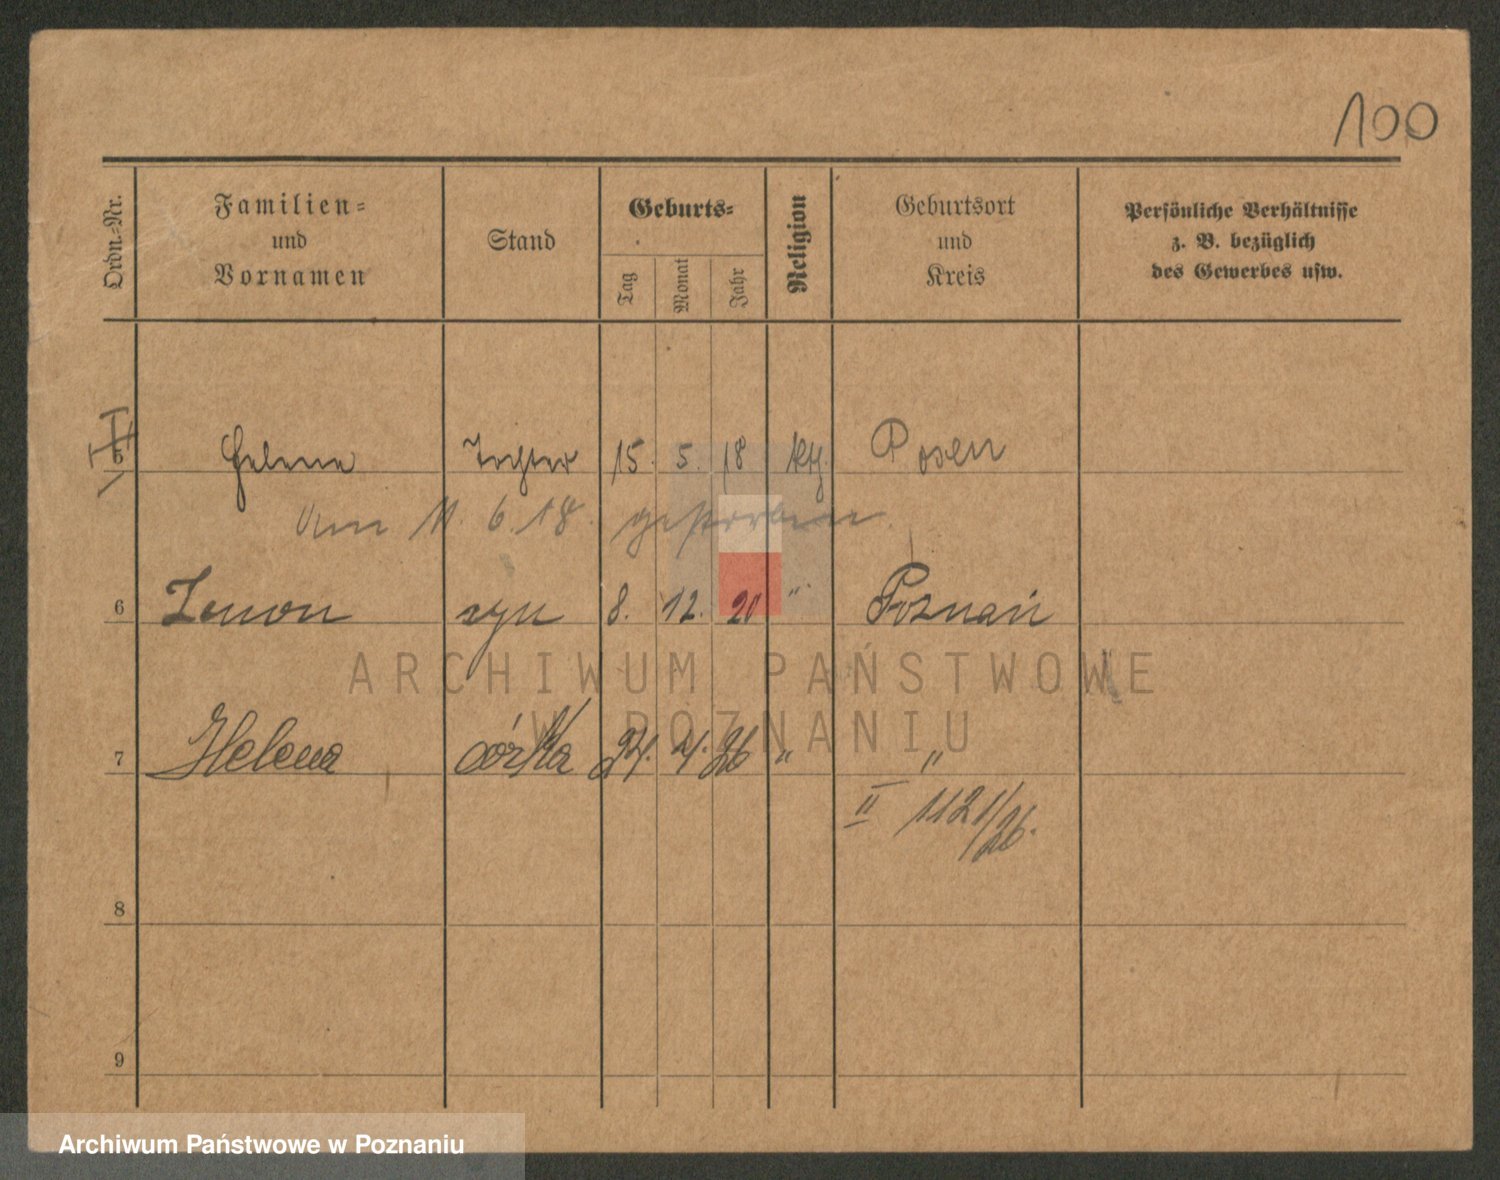 100
Ordn.-Nr.
Familien-
und
Vornamen
Stand
Geburts-
Tag
Monat
Jahr
Religion
Geburtsort
und
Kreis
Persönliche Verhältnisse
z. B. bezüglich
des Gewerbes usw.
5 Helene Tochter 15. 5. 18 kth. Posen
Am 11. 6. 18. gestorben.
6 Zenon syn 8. 12. 20 " Poznań
ARCHIWUM PAŃSTWOWE
W POZNANIU
7 Helena córka 24. 4. 26 " "
II 1121/26.
8
9
Archiwum Państwowe w Poznaniu